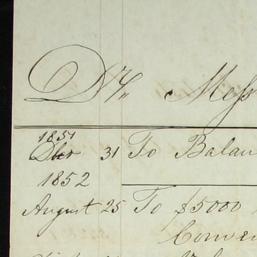 Dr. Mess
1851
Dbr 31 To Balan
1852
August 25 To $5000
Conve